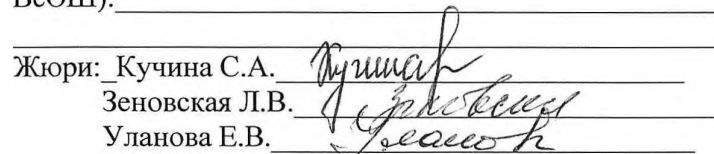 ВсОШ).
Жюри: Кучина С.А.
Зеновская Л.В.
Уланова Е.В.